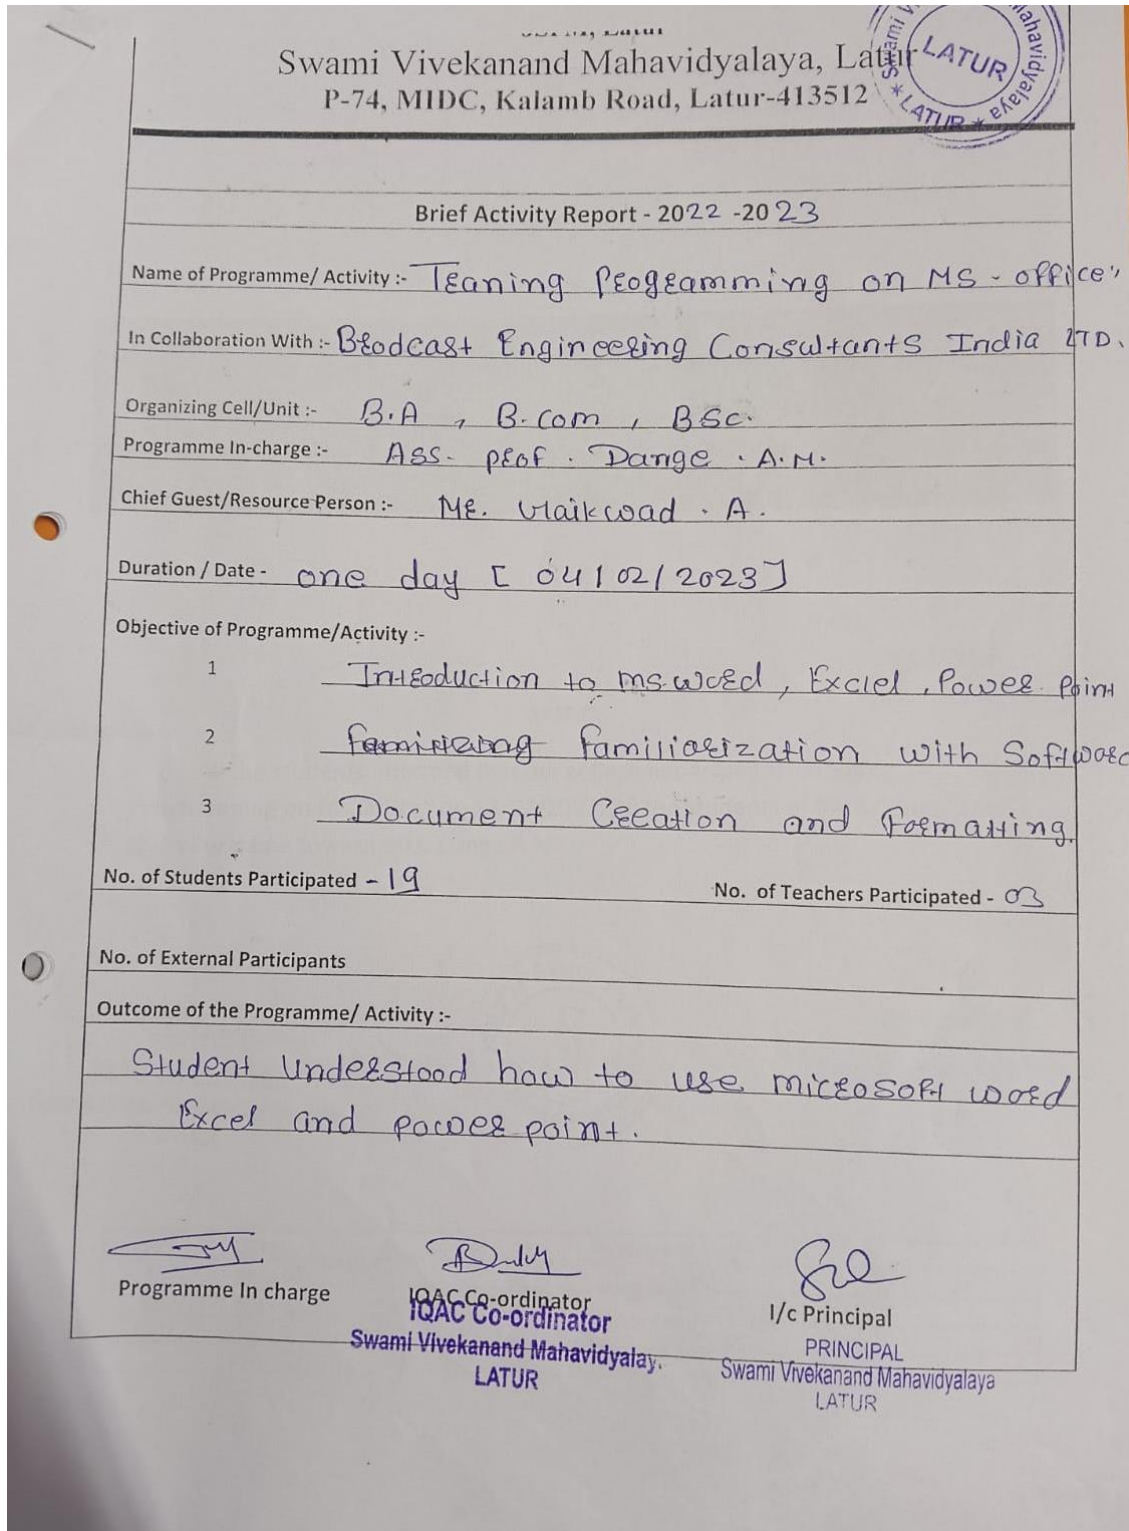 Swami Vivekanand Mahavidyalaya, Latur
P-74, MIDC, Kalamb Road, Latur-413512
Swami Vi
Mahavidyalaya
LATUR
* LATUR *
Brief Activity Report - 2022 -2023
Name of Programme/ Activity :- Traning Programming on MS - office"
In Collaboration With :- Brodcast Engineering Consultants India LTD.
Organizing Cell/Unit :- B.A , B.com , BSc.
Programme In-charge :- Ass. prof. Dange . A.M.
Chief Guest/Resource Person :- Mr. Gaikwad . A .
Duration / Date - one day [ 04/02/2023]
Objective of Programme/Activity :-
1 Introduction to ms.word, Exclel, Power Point
2 familiarization with Softwore
3 Document Creation and Formatting.
No. of Students Participated - 19 No. of Teachers Participated - 03
No. of External Participants
Outcome of the Programme/ Activity :-
Student Understood how to use microsoft word
Excel and power point.
Programme In charge
IQAC Co-ordinator
I/c Principal
IQAC Co-ordinator
Swami Vivekanand Mahavidyalay.
LATUR
PRINCIPAL
Swami Vivekanand Mahavidyalaya
LATUR